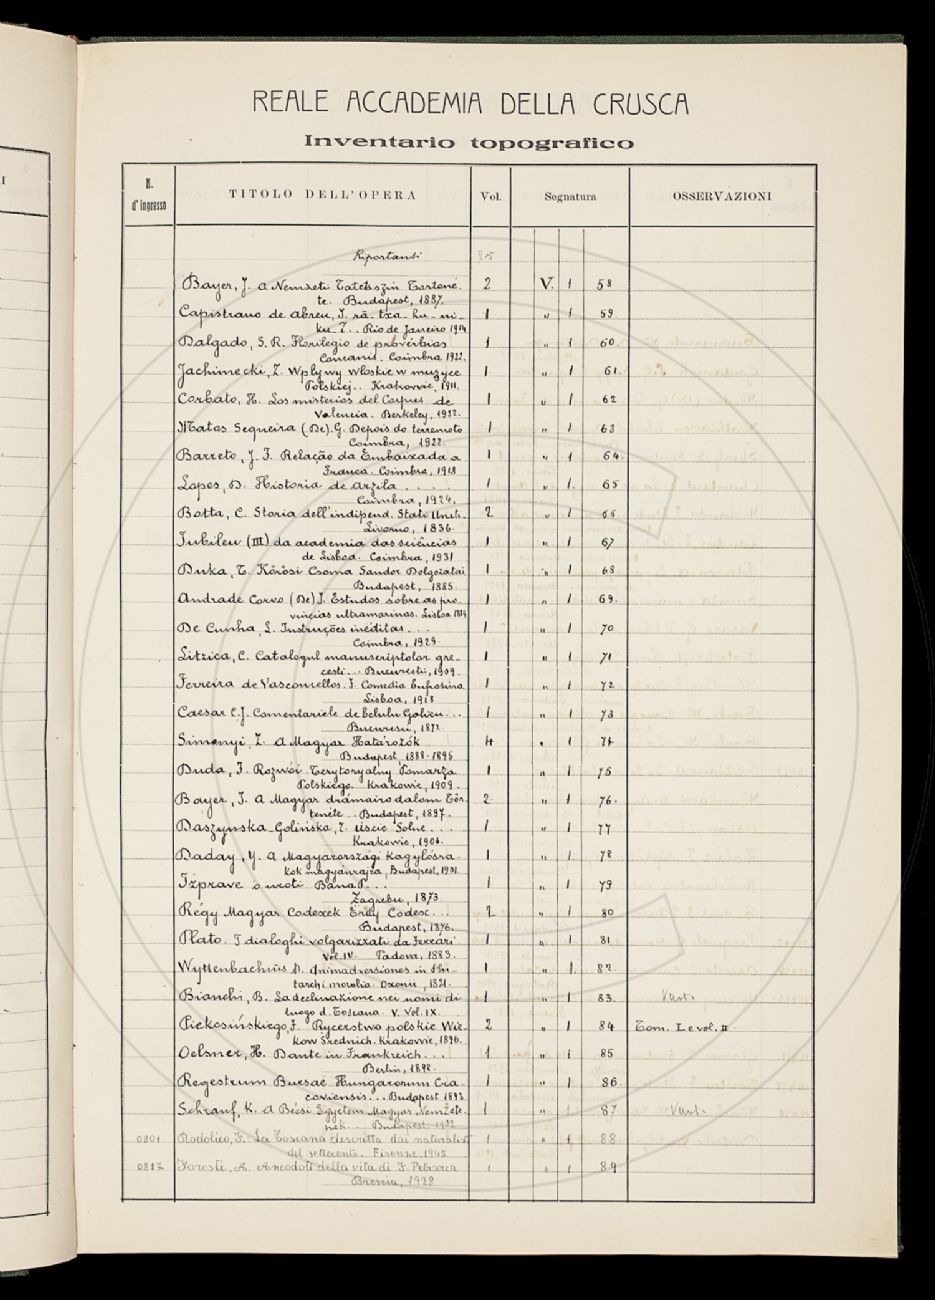 REALE ACCADEMIA DELLA CRUSCA
Inventario topografico
N. d'ingresso TITOLO DELL'OPERA Vol. Segnatura OSSERVAZIONI
Riportanti
Bayer, J. A Nemzeti 2 V. 1 58
te. Budapest, 1887.
Capistrano de Abreu, J. rã-txa-hu-ni- 1 " 1 59.
ku-ĩ.. Rio de Janeiro 1914
Dalgado, S. R. Florilegio de provérbios 1 " 1 60.
Concanis. Coimbra 1922.
Jachimecki, Z. Wplywy wloskie w muzyce 1 " 1 61.
Polskiej.. Krakowie, 1911.
Corbato, H. Los misterios del Corpus de 1 " 1 62
Valencia. Berkeley, 1932.
Matos Sequeira (De). G. Depois do terremoto 1 " 1 63
Coimbra, 1922.
Barreto, J. F. Relação da Embaixada a 1 " 1 64.
França. Coimbra, 1918
Lopes, D. Historia de Arzila . . . . 1 " 1. 65
Coimbra, 1924.
Botta, C. Storia dell'indipend. Stati Uniti. 2 " 1 66
Livorno, 1836.
Jubileu (III) da academia das sciências 1 " 1 67
de Lisboa. Coimbra, 1931
Duka, T. Körösi Csoma Sandor Dolgozatai 1 " 1 68
Budapest, 1885.
Andrade Corvo (De) J. Estudos sobre as pro- 1 " 1 69.
vincias ultramarinas. Lisboa
De Cunha, L. Instruções inéditas . . . 1 " 1 70
Coimbra, 1929.
Litzica, C. Catalogul manuscriptolor gre- 1 " 1 71
cesti... Bucuresti, 1909.
Ferreira de Vasconcellos. J. Comedia Eufrosina 1 " 1 72
Lisboa, 1918
Caesar C. J. Comentariele de belulu Golicu... 1 " 1 73
Bucuresci, 1872.
Simonyi, Z. A Magyar Határozók 4 " 1 74
Budapest, 1888-1895
Buda, F. Rozwój Terytoryalny Pomorza 1 " 1 75
Polskiego. Krakowie, 1909.
Bayer, J. A Magyar drámairodalom Tör- 2 " 1 76.
ténete.. Budapest, 1897.
Daszynska-Golińska, Z. Uscie Solne... 1 " 1 77
Krakowie, 1906.
Daday, A Magyarországi Kagylósra- 1 " 1. 78
kok magyánrajza, Budapest, 1901.
Izprave o uroti Bana P... 1 " 1 79
Zagrebu, 1873
Régy Magyar Codexek Erdy Codesc... 2 " 1 80
Budapest, 1876.
Plato. I dialoghi volgarizzati da Ferrari 1 " 1 81
Vol. IV. Padova, 1883.
Wyttenbachius D. Animadversiones in Plu- 1 " 1. 82.
tarchi moralia. Oxonii, 1821.
Bianchi, B. La declinazione nei nomi di 1 " 1 83.
luogo d. Toscana. V. Vol. IX.
Piekosińskiego, F. Rycerstwo polskie Wie- 2 " 1 84 Tom. I e vol. II
kow Srednich. Krakowie, 1896.
Oelsner, H. Dante in Frankreich... 1 " 1 85
Berlin, 1898.
Regestrum Bursae Hungarorum Cra- 1 " 1 86.
coviensis... Budapest 1893
Schrauf, K. A Bécsi Egyetem Magyar Nemzete- 1 " 1 87
nek... Budapest,
0801 Rodolico, F. La Toscana descritta dai naturalisti 1 " 1 88
del settecento. Firenze, 1945
0817 Foresti, A. Aneddoti della vita di F. Petrarca 1 " 1 89
Brescia, 1928